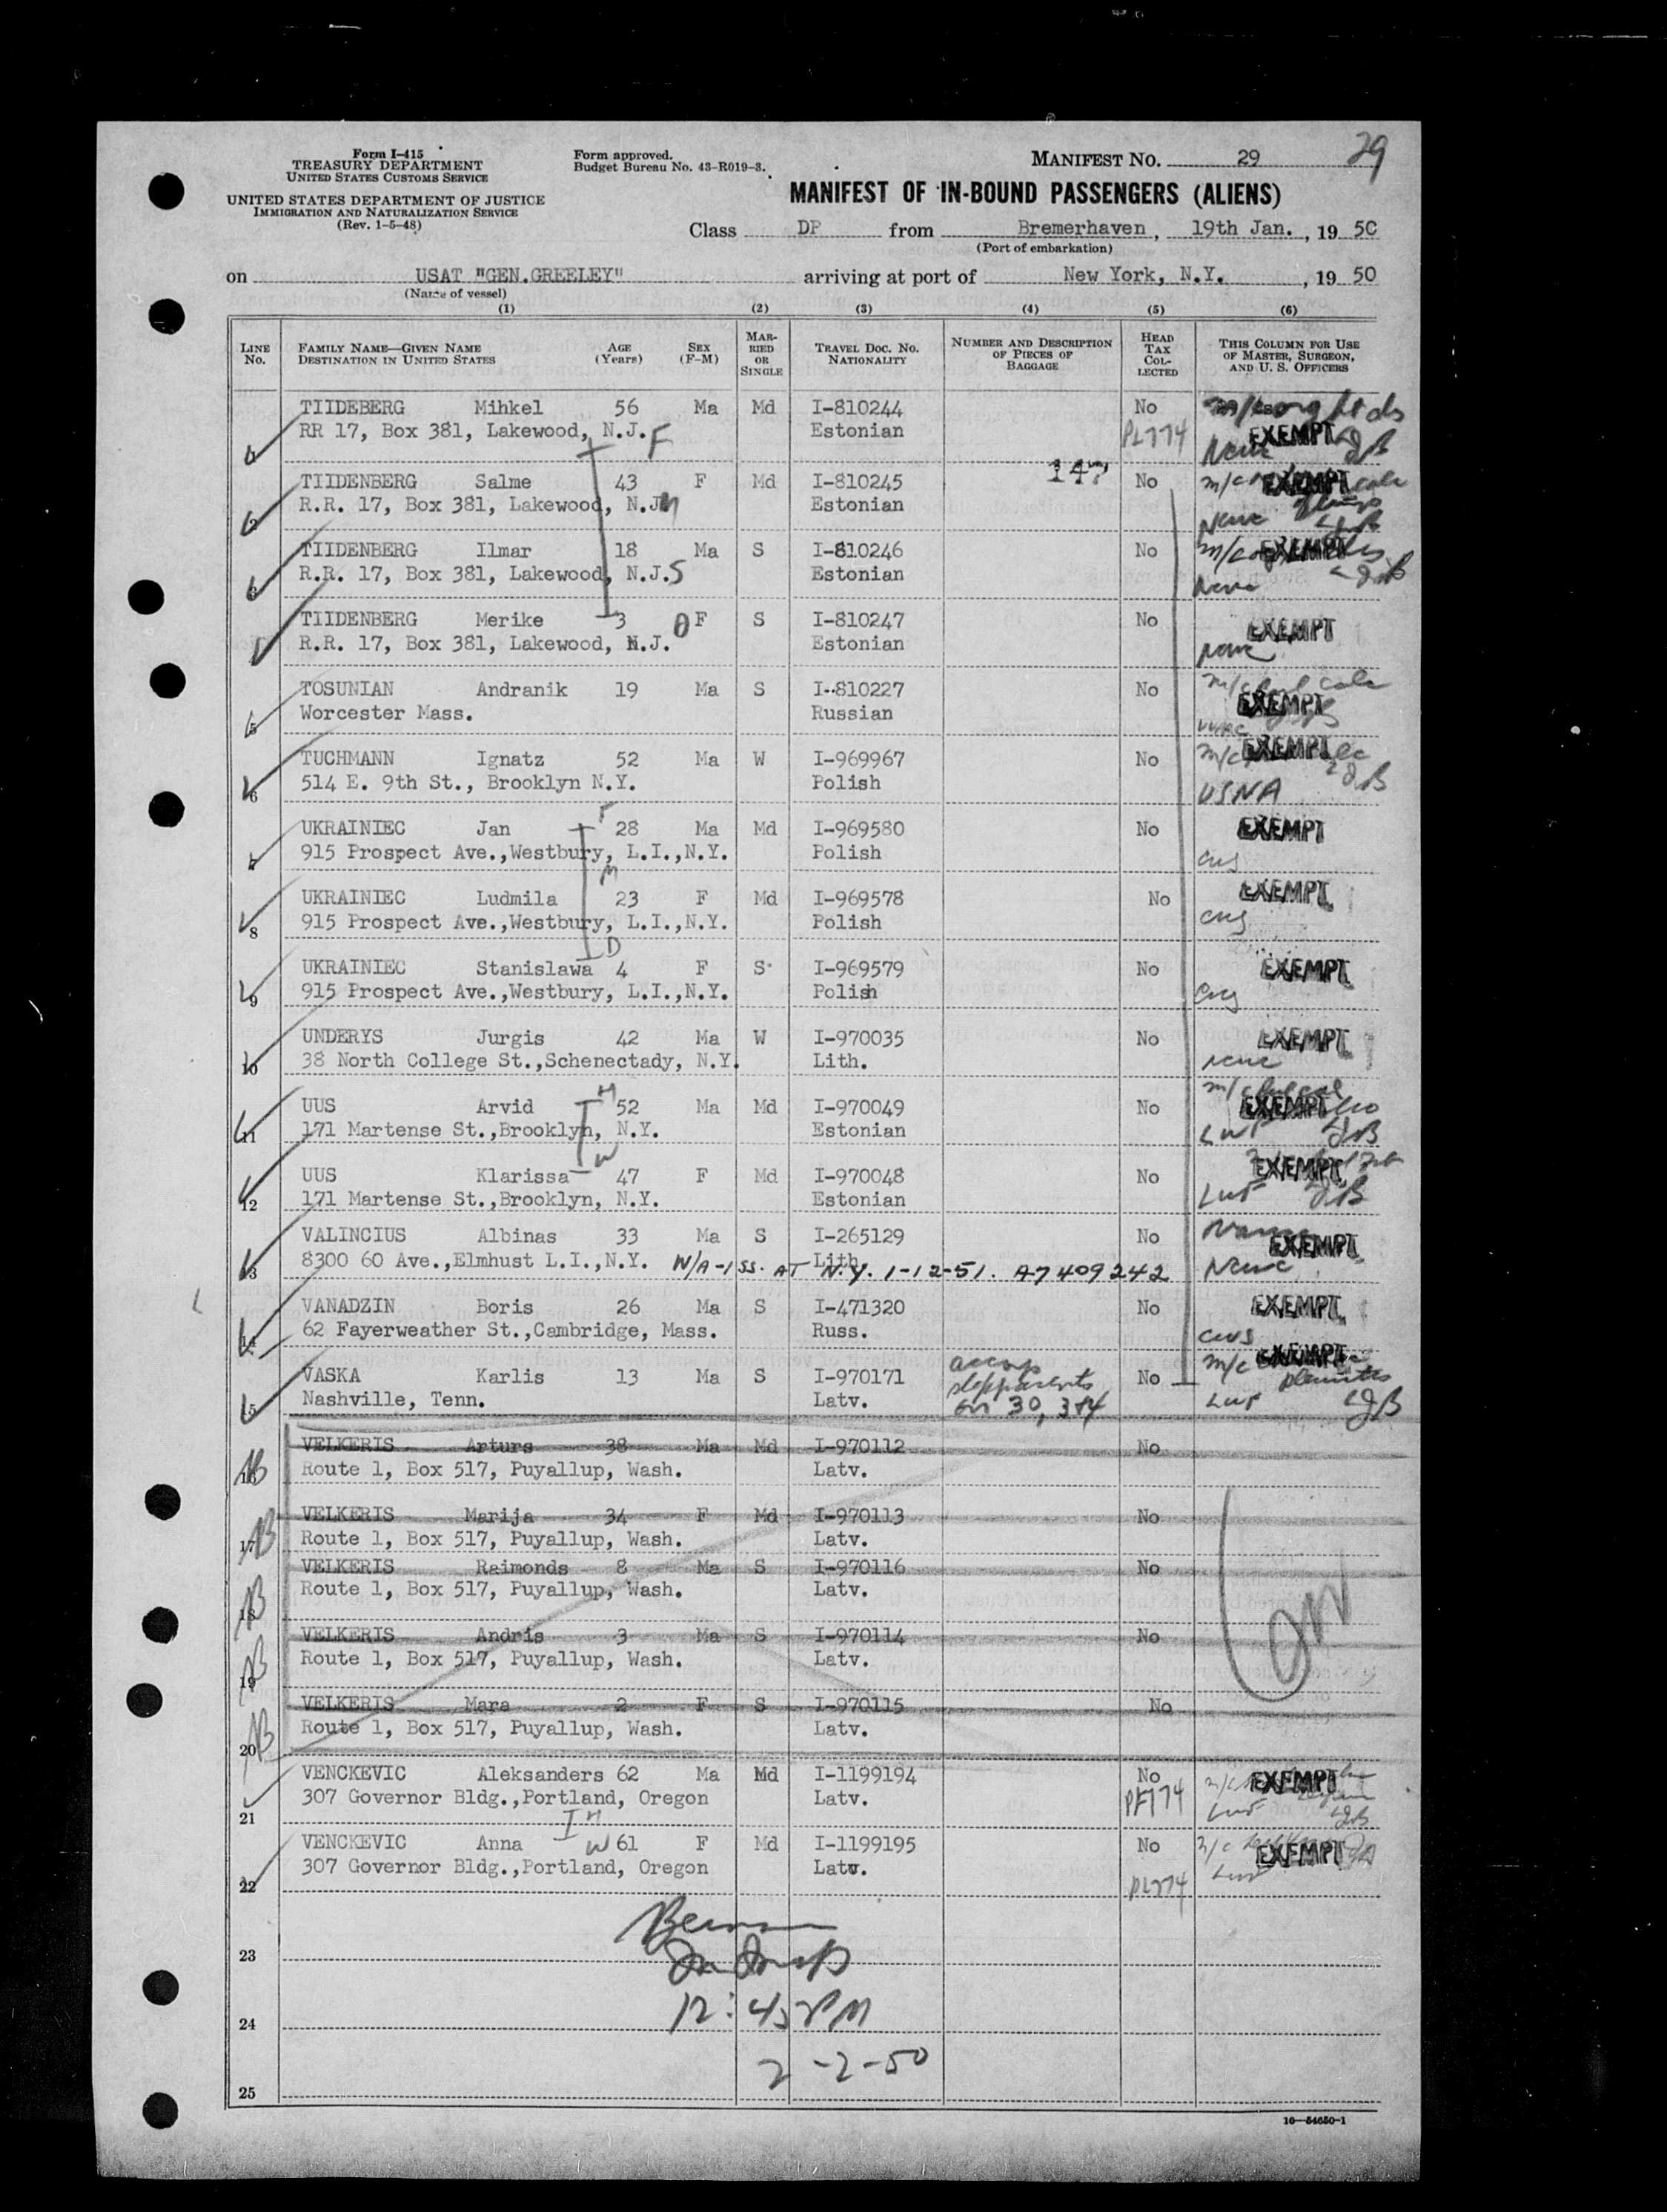 Form I-415
TREASURY DEPARTMENT
UNITED STATES CUSTOMS SERVICE
UNITED STATES DEPARTMENT OF JUSTICE
IMMIGRATION AND NATURALIZATION SERVICE
(Rev. 1-5-48)
Form approved.
Budget Bureau No. 43-R019-3.
MANIFEST NO. 29 29
MANIFEST OF IN-BOUND PASSENGERS (ALIENS)
Class DP from Bremerhaven, 19th Jan., 19 50
(Port of embarkation)
on USAT "GEN.GREELEY" arriving at port of New York, N.Y., 19 50
(Name of vessel)
(1) (2) (3) (4) (5) (6)
LINE NO. FAMILY NAME—GIVEN NAME DESTINATION IN UNITED STATES AGE (Years) SEX (F-M) MARRIED OR SINGLE TRAVEL DOC. NO. NATIONALITY NUMBER AND DESCRIPTION OF PIECES OF BAGGAGE HEAD TAX COLLECTED THIS COLUMN FOR USE OF MASTER, SURGEON, AND U. S. OFFICERS
TIIDEBERG Mihkel 56 Ma Md I-810244 No
RR 17, Box 381, Lakewood, N.J. F Estonian PL774 EXEMPT
147
TIIDENBERG Salme 43 F Md I-810245 No EXEMPT
2 R.R. 17, Box 381, Lakewood, N.J. M Estonian
TIIDENBERG Ilmar 18 Ma S I-810246 No EXEMPT
R.R. 17, Box 381, Lakewood, N.J. S Estonian
TIIDENBERG Merike 3 F S I-810247 No EXEMPT
R.R. 17, Box 381, Lakewood, N.J. Estonian
TOSUNIAN Andranik 19 Ma S I-810227 No EXEMPT
5 Worcester Mass. Russian
TUCHMANN Ignatz 52 Ma W I-969967 No EXEMPT
6 514 E. 9th St., Brooklyn N.Y. Polish USNA
UKRAINIEC Jan F 28 Ma Md I-969580 No EXEMPT
915 Prospect Ave.,Westbury, L.I.,N.Y. Polish
M
UKRAINIEC Ludmila 23 F Md I-969578 No EXEMPT
8 915 Prospect Ave.,Westbury, L.I.,N.Y. Polish
D
UKRAINIEC Stanislawa 4 F S I-969579 No EXEMPT
9 915 Prospect Ave.,Westbury, L.I.,N.Y. Polish
UNDERYS Jurgis 42 Ma W I-970035 No EXEMPT
10 38 North College St.,Schenectady, N.Y. Lith.
UUS Arvid H 52 Ma Md I-970049 No EXEMPT
11 171 Martense St.,Brooklyn, N.Y. Estonian
W
UUS Klarissa 47 F Md I-970048 No EXEMPT
12 171 Martense St.,Brooklyn, N.Y. Estonian
VALINCIUS Albinas 33 Ma S I-265129 No EXEMPT
13 8300 60 Ave.,Elmhust L.I.,N.Y. Lith.
W/A-ISS. AT N.Y. 1-12-51. A7409242
VANADZIN Boris 26 Ma S I-471320 No EXEMPT
14 62 Fayerweather St.,Cambridge, Mass. Russ.
VASKA Karlis 13 Ma S I-970171 No EXEMPT
15 Nashville, Tenn. Latv.
accomp stepparents on 30, 3+4
VELKERIS Arturs 38 Ma Md I-970112 No
Route 1, Box 517, Puyallup, Wash. Latv.
VELKERIS Marija 34 F Md I-970113 No
17 Route 1, Box 517, Puyallup, Wash. Latv.
VELKERIS Raimonds 8 Ma S I-970116 No
18 Route 1, Box 517, Puyallup, Wash. Latv.
VELKERIS Andris 3 Ma S I-970114 No
19 Route 1, Box 517, Puyallup, Wash. Latv.
VELKERIS Mara 2 F S I-970115 No
20 Route 1, Box 517, Puyallup, Wash. Latv.
VENCKEVIC Aleksanders 62 Ma Md I-1199194 No EXEMPT
21 307 Governor Bldg.,Portland, Oregon Latv. PL774
H
VENCKEVIC Anna W 61 F Md I-1199195 No EXEMPT
22 307 Governor Bldg.,Portland, Oregon Latv. PL774
23
24
12:45 PM
2-2-50
25
16—54650-1